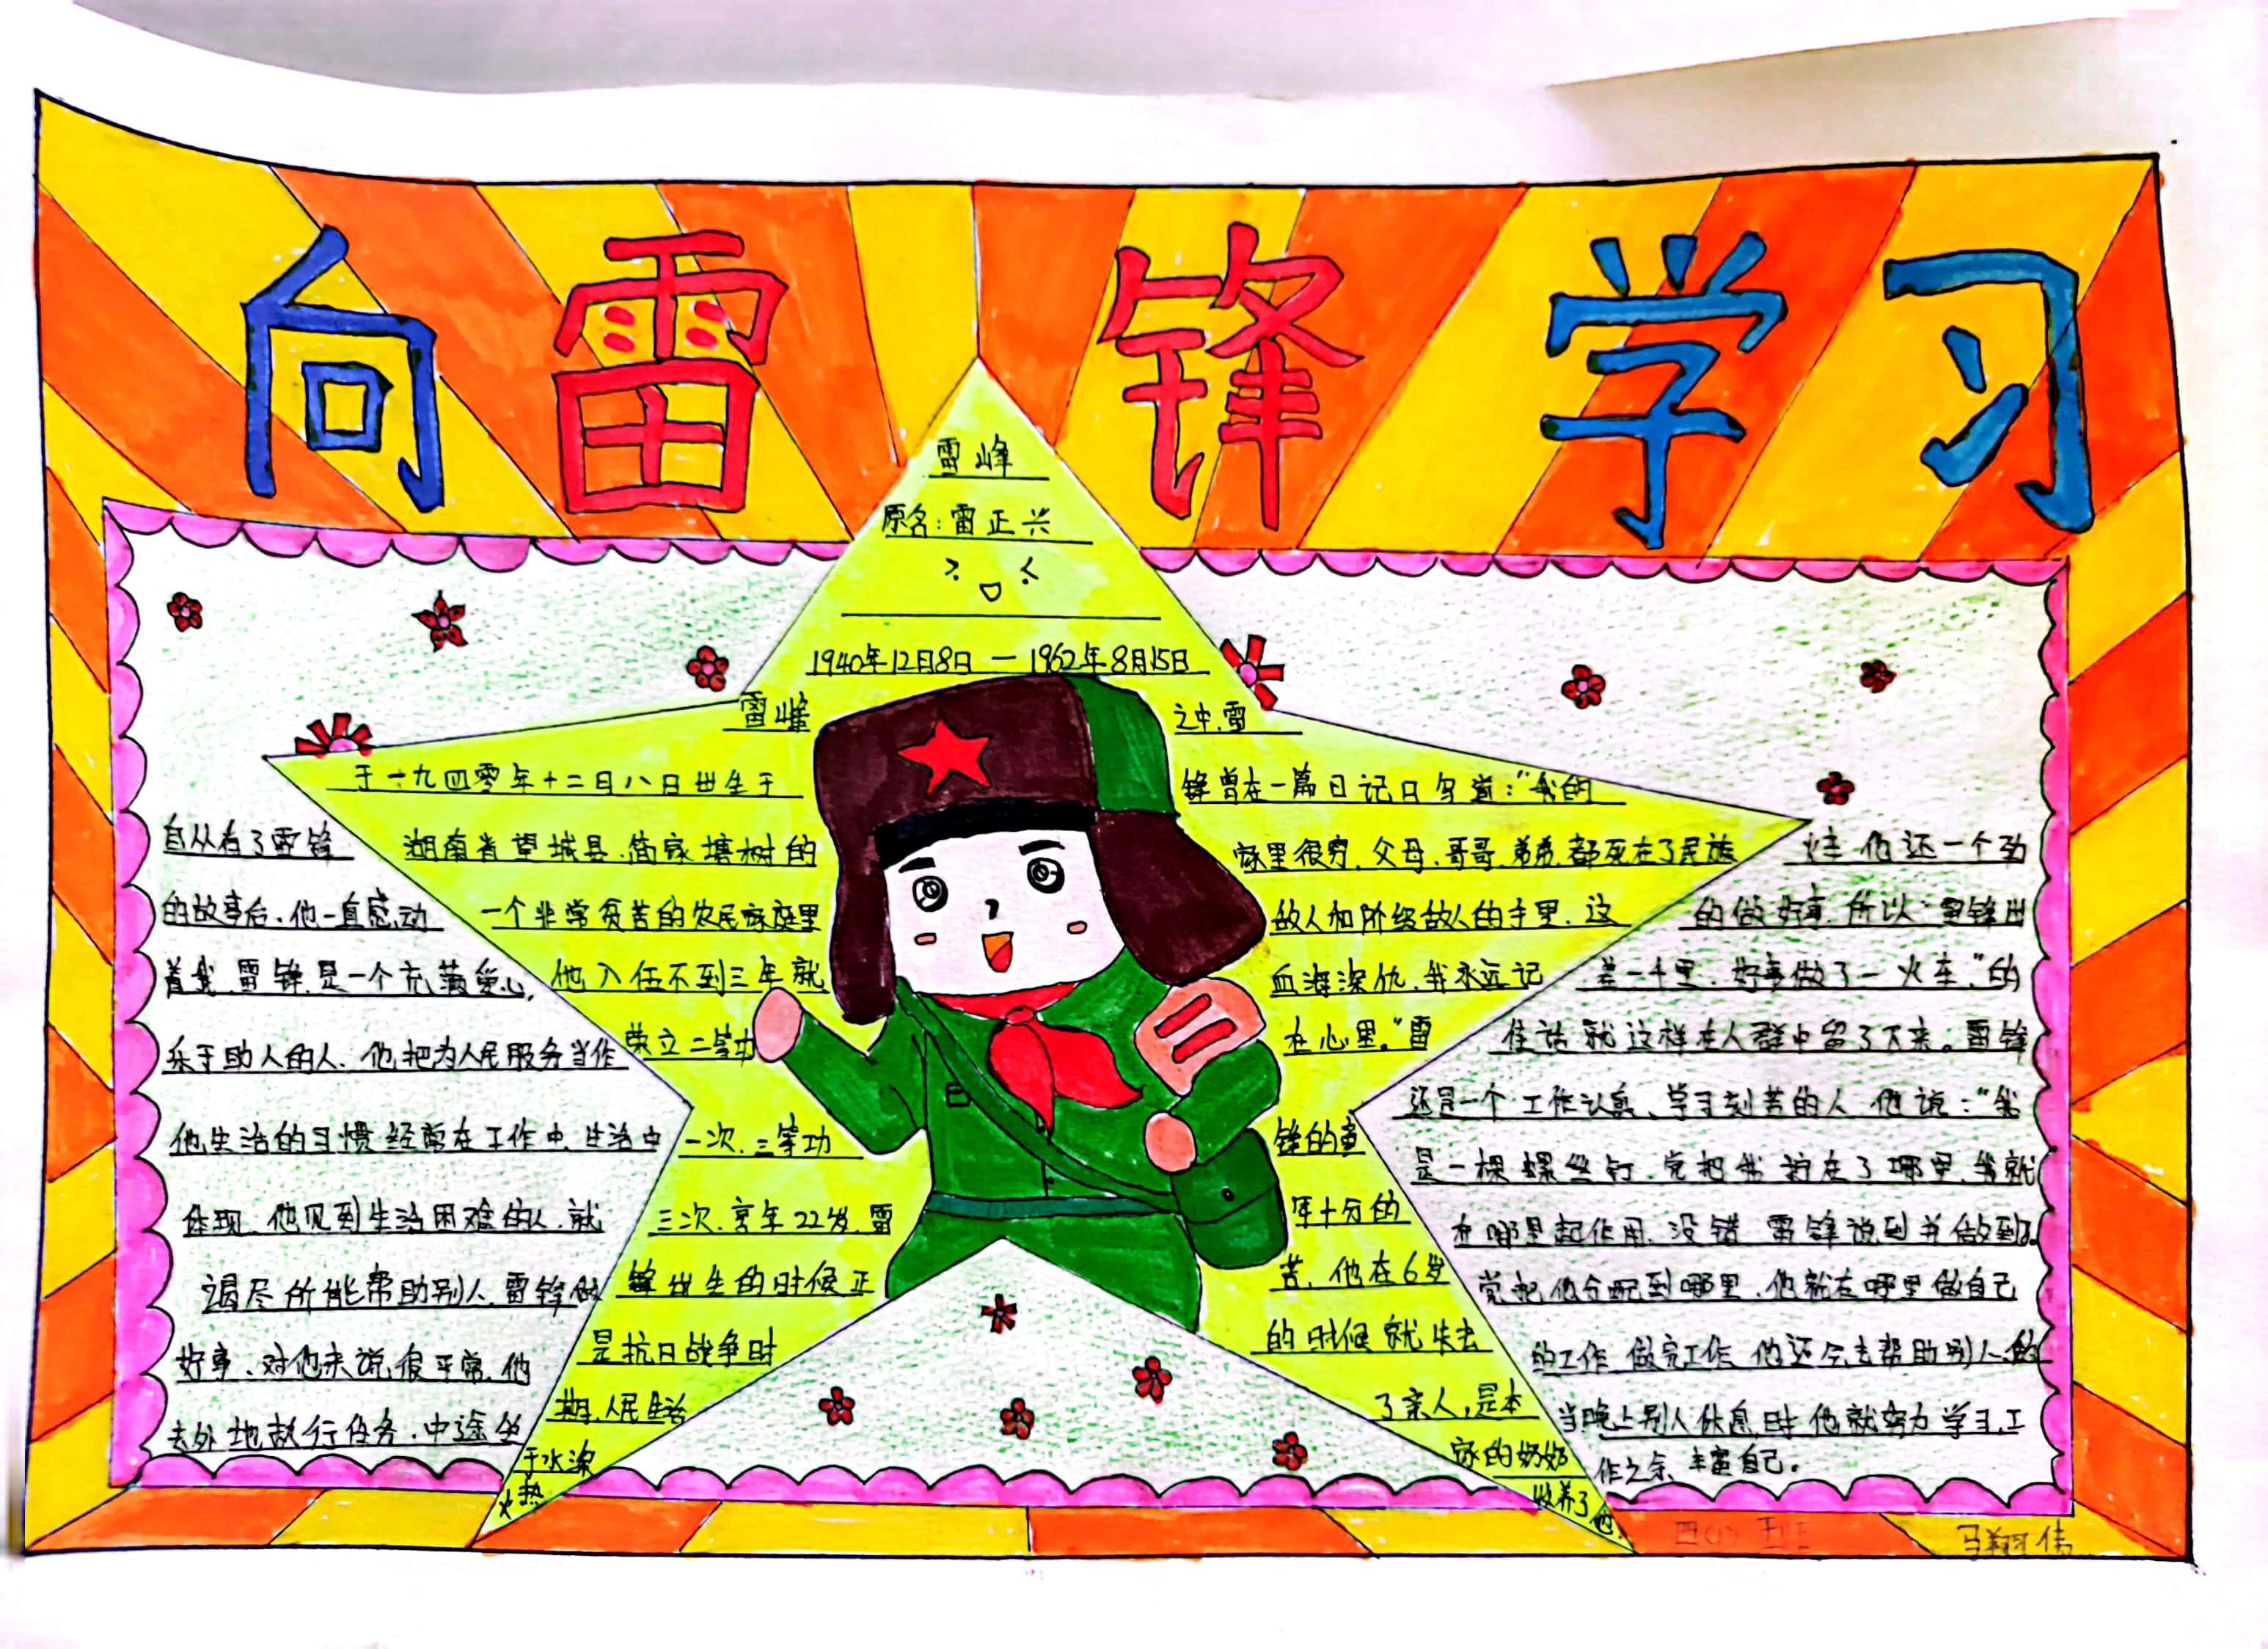 向雷锋学习
雷峰
原名：雷正兴
1940年12月8日 — 1962年8月15日
雷峰
于一九四零年十二日八日世生于
湖南省望城县.简家塘树的
一个非常贫苦的农民家庭里
他入伍不到三年就
荣立二等功
一次.三等功
三次.享年22岁.雷
锋出生的时候正
是抗日战争时
期.人民生活
于水深
火热
之中.雷
锋曾在一篇日记日写道：“我的
家里很穷.父母.哥哥.弟弟.都死在了民族
敌人和阶级敌人的手里.这
血海深仇.我永远记
在心里。”雷
锋的童
年十分的
苦.他在6岁
的时候就失去
了亲人，是本
家的奶奶
收养了
他.
自从看了雷锋
的故事后.他一直感动
着我.雷锋.是一个充满爱心，
乐于助人的人.他把为人民服务当作
他生活的习惯经常在工作中.生活中
体现.他见到生活困难的人.就
竭尽所能帮助别人.雷锋做
好事.对他来说.很平常.他
去外地执行任务.中途坐
火车.他还一个劲
的做好事.所以“雷锋出
差一千里.好事做了一火车.”的
佳话就这样在人群中留了下来。雷锋
还是一个工作认真、学习刻苦的人 他说：“我
是一棵螺丝钉.党把我拧在了哪里.我就
在哪里起作用.没错 雷锋说到并做到了.
党把他分配到哪里.他就在哪里做自己
的工作 做完工作 他还会去帮助别人.
当晚上别人休息时 他就努力学习.工
作之余 丰富自己。
四(1)班
马翔伟